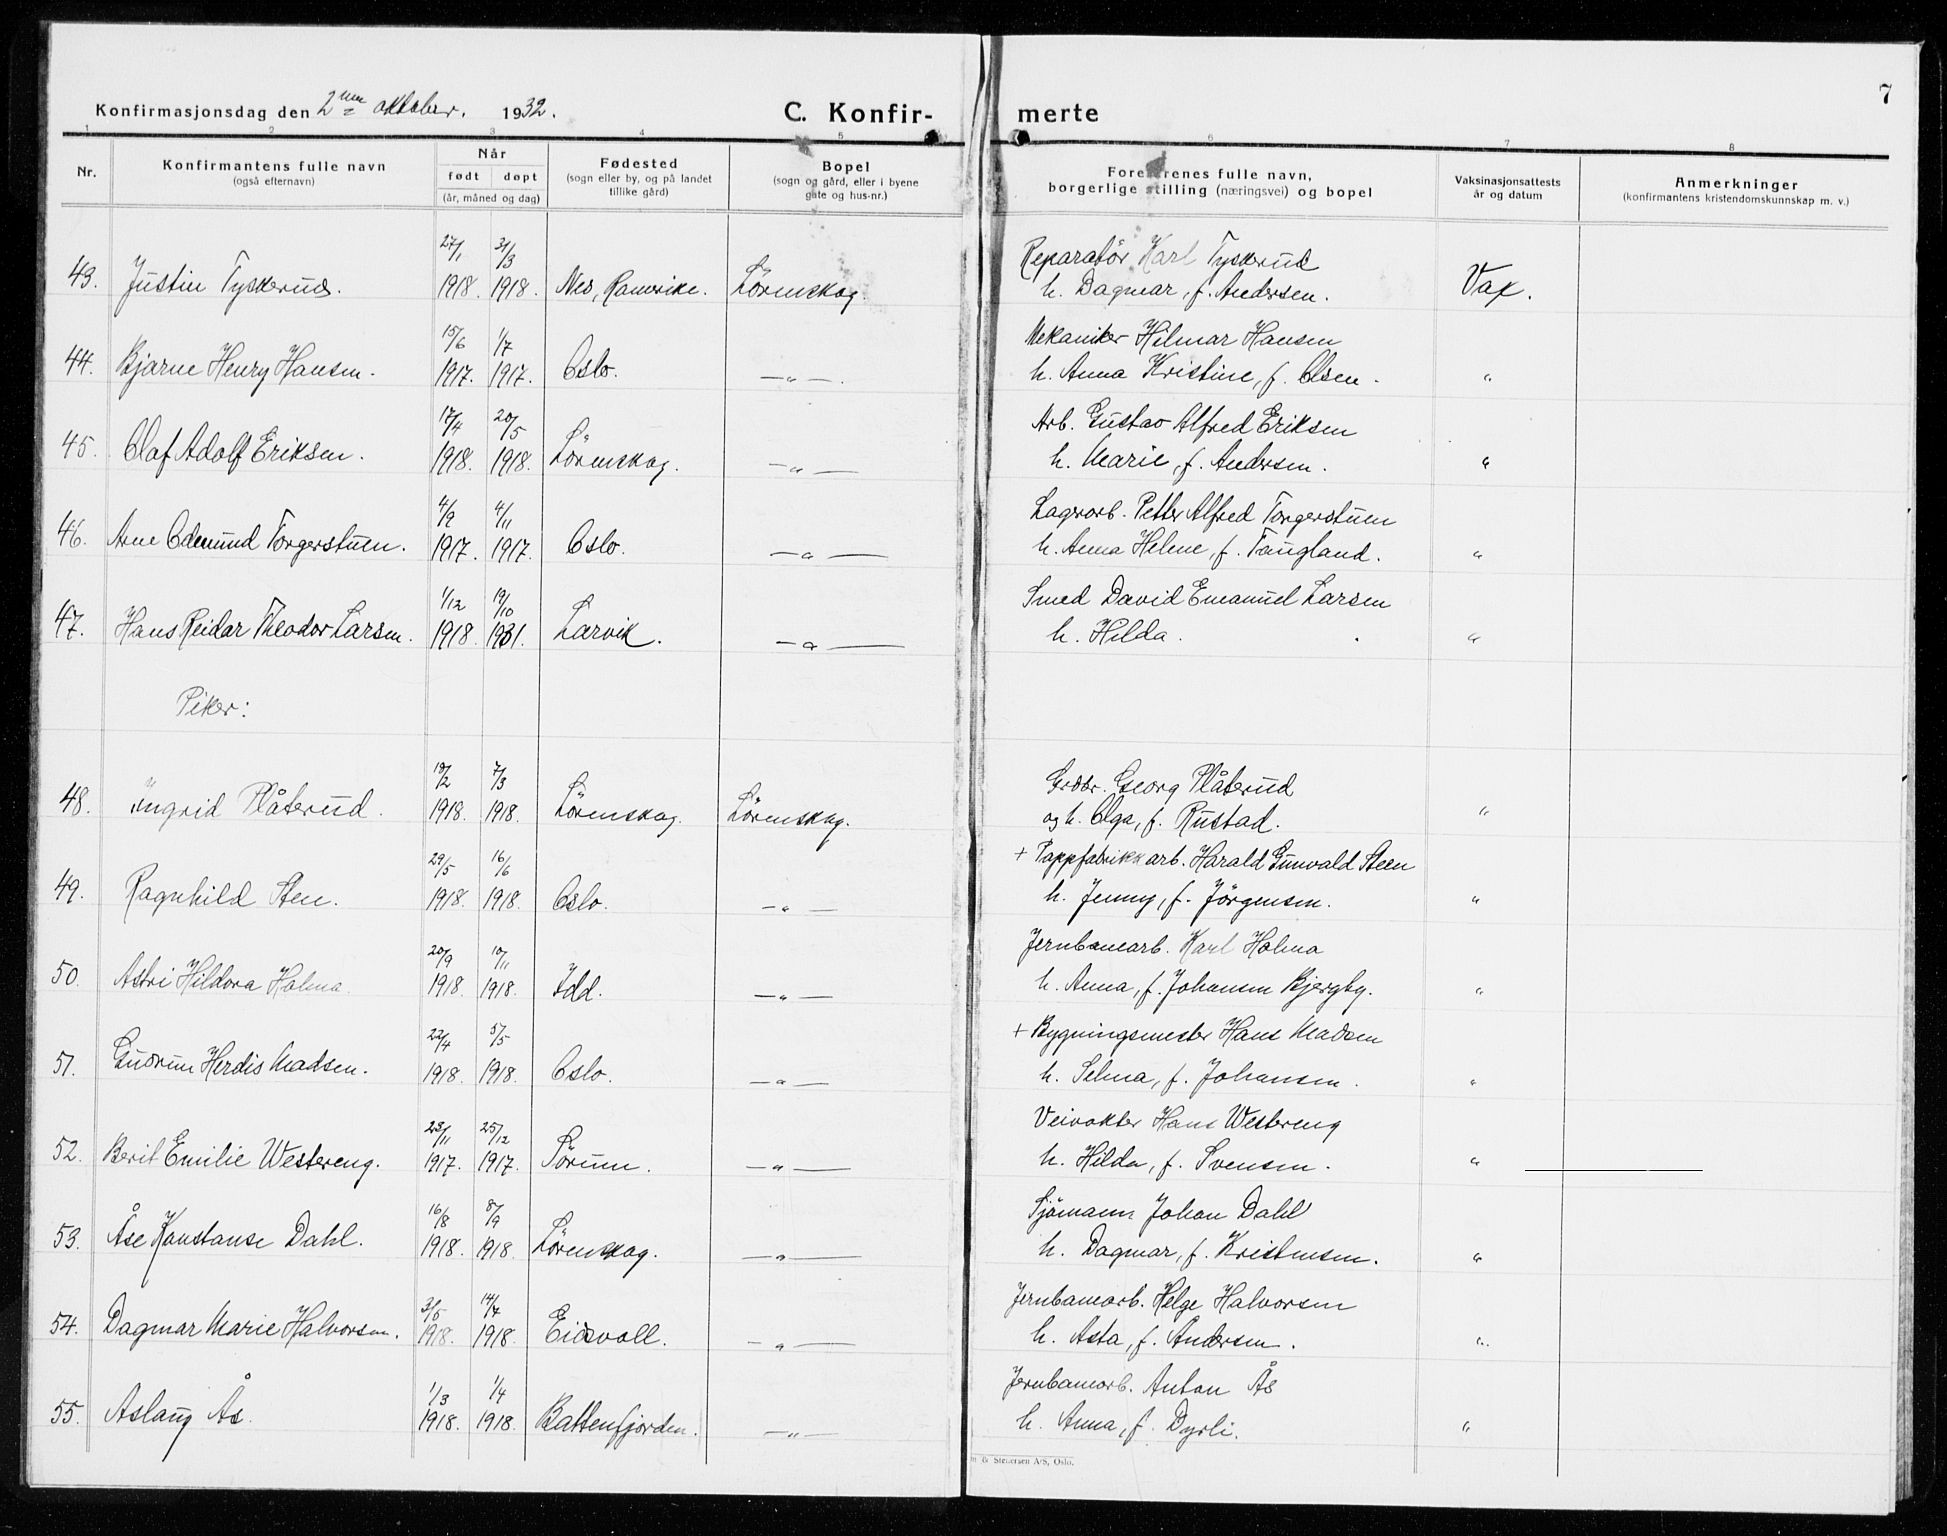 Konfirmasjonsdag den 2nen oktober. 1932.
C. Konfir-
merte
7
1 2 3 4 5 6 7 8
Nr.
Konfirmantens fulle navn
(også efternavn)
Når
født døpt
(år, måned og dag)
Fødested
(sogn eller by, og på landet
tillike gård)
Bopel
(sogn og gård, eller i byene
gate og hus-nr.)
Foreldrenes fulle navn,
borgerlige stilling (næringsvei) og bopel
Vaksinasjonsattests
år og datum
Anmerkninger
(konfirmantens kristendomskunnskap m. v.)
27/1 31/3 Reparatør Karl Tyskerud
43. Justin Tyskerud. 1918. 1918. Nes, Romerike. Lörenskog. h. Dagmar, f. Andersen. Vax.
15/6 1/7 Mekaniker Hilmar Hansen
44. Bjarne Henry Hansen. 1917. 1917. Oslo. —"—. h. Anna Kristine, f. Olsen. "
17/4 20/5 Arb. Gustav Alfred Eriksen
45. Olaf Adolf Eriksen. 1918. 1918. Lörenskog. —"— h. Marie, f. Andersen. "
4/9 4/11 Lagerarb. Petter Alfred Torgerstuen
46. Arne Odmund Torgerstuen. 1917. 1917. Oslo. —"— h. Anna Helene, f. Taugland. "
1/12 19/10 Smed David Emanuel Larsen
47. Hans Reidar Theodor Larsen. 1918. 1931. Larvik. —"— h. Hilda. "
Piker:
19/2 7/3 Grdbr. Georg Plåterud
48. Ingrid Plåterud. 1918. 1918. Lörenskog. Lörenskog. og h. Olga, f. Rustad. "
29/5 16/6 + Pappfabrikkarb. Harald Gunvald Steen
49. Ragnhild Sten. 1918. 1918. Oslo. —"— h. Jenny, f. Jörgensen. "
20/9 10/11 Jernbanearb. Karl Holma
50. Astri Hildora Holma. 1918. 1918. Idd. —"— h. Anna, f. Johansen Bjergby. "
22/4 5/5 + Bygningsmester Hans Madsen
51. Gudrun Herdis Madsen. 1918. 1918. Oslo. —"— h. Selma, f. Johansen. "
23/11 25/12 Veivokter Hans Westereng
52. Berit Emilie Westereng. 1917. 1917. Sörum. —"— h. Hilda, f. Svensen. "
16/8 8/9 Sjömann Johan Dahl
53. Åse Konstanse Dahl. 1918. 1918. Lörenskog. —"— h. Dagmar, f. Kristensen. "
3/5 14/7 Jernbanearb. Helge Halvorsen
54. Dagmar Marie Halvorsen. 1918. 1918. Eidsvoll. —"— h. Asta, f. Andersen. "
1/3 1/4 Jernbanearb. Anton Ås
55. Aslaug Ås. 1918. 1918. Battenfjorden. —"— h. Anna, f. Dyrli. "
& Stenersen A/S, Oslo.